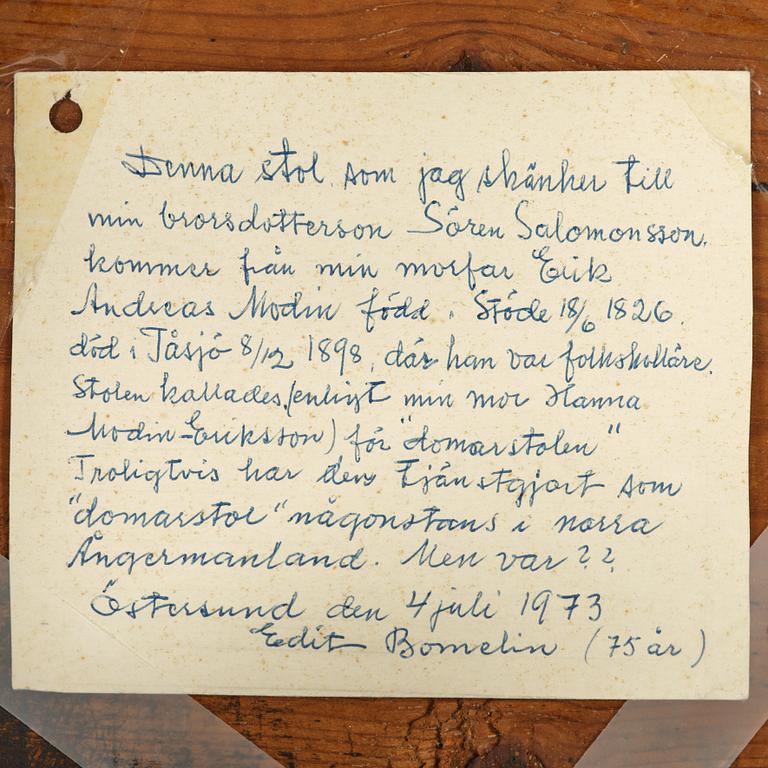 Denna stol som jag skänker till
min brorsdotterson Sören Salomonsson,
kommer från min morfar Erik
Andreas Modin född i Stöde 18/6 1826.
död i Tåsjö 8/12 1898, där han var folkskollärare.
Stolen kallades (enligt min mor Hanna
Modin-Eriksson) för "domarstolen"
Troligtvis har den tjänstgjort som
"domarstol" någonstans i norra
Ångermanland. Men var ??
Östersund den 4 juli 1973
Edit Bomelin (75 år)